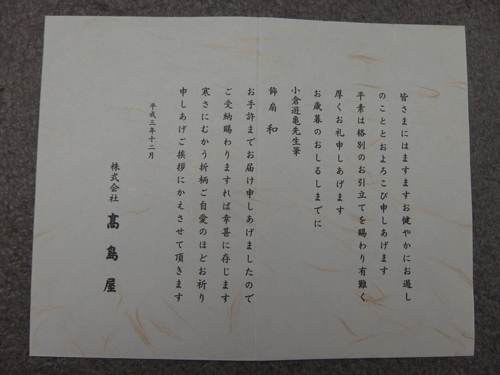 皆さまにはますますお健やかにお過し
のこととおよろこび申しあげます
平素は格別のお引立てを賜わり有難く
厚くお礼申しあげます
お歳暮のおしるしまでに
小倉遊亀先生筆
飾扇 和
お手許までお届け申しあげましたので
ご受納賜わりますれば幸甚に存じます
寒さにむかう折柄ご自愛のほどお祈り
申しあげご挨拶にかえさせて頂きます
平成三年十二月
株式会社 髙島屋